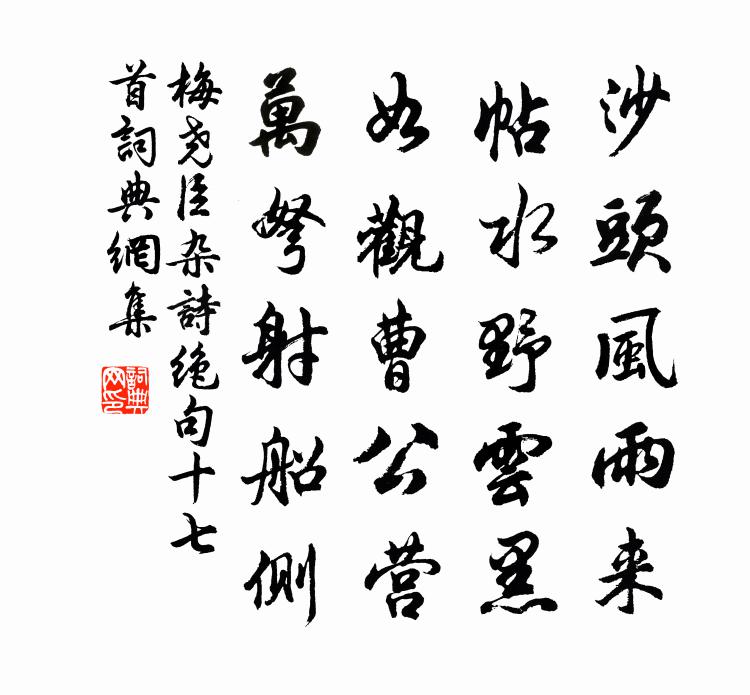 沙頭風雨来
帖水野雲黑
如觀曹公营
萬弩射船側
梅尧臣杂詩绝句十七
首詞典網集
詞典
网印